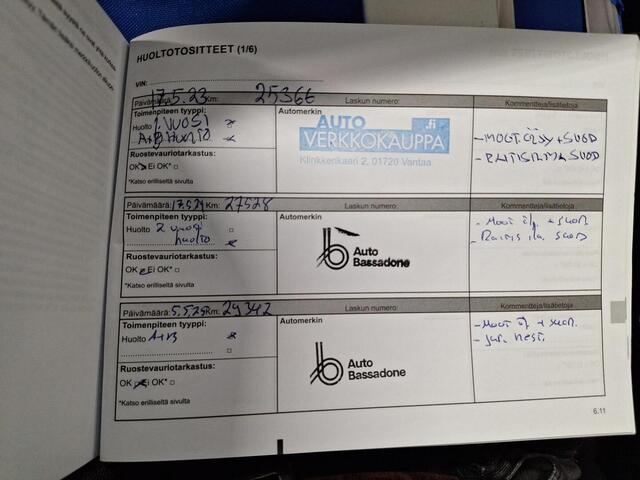 HUOLTOTOSITTEET (1/6)
VIN:
Päivämäärä: 17.5.23 Km: 25366 Laskun numero: Kommentteja/lisätietoja
Toimenpiteen tyyppi: Automerkin
Huolto 1. VUOSI
A+B HUOLTO
AUTO
VERKKOKAUPPA.fi
Klinkkerikaari 2, 01720 Vantaa
- MOOT.ÖLJY + SUOD
- RAITISILMA SUOD
Ruostevauriotarkastus:
OK Ei OK* □
*Katso erillliseltä sivulta
Päivämäärä: 17.5.24 Km: 27528 Laskun numero: Kommentteja/lisätietoja
Toimenpiteen tyyppi: Automerkin
Huolto 2 vuosi □
huolto
Auto
Bassadone
- Moot ölj + suod.
- Raitis ilm. suod
Ruostevauriotarkastus:
OK Ei OK* □
*Katso erilliseltä sivulta
Päivämäärä: 5.5.25 Km: 29342 Laskun numero: Kommentteja/lisätietoja
Toimenpiteen tyyppi: Automerkin
Huolto A+B
□
Auto
Bassadone
- Moot ölj + suod.
- jar. nest.
Ruostevauriotarkastus:
OK Ei OK* □
*Katso erilliseltä sivulta
6.11